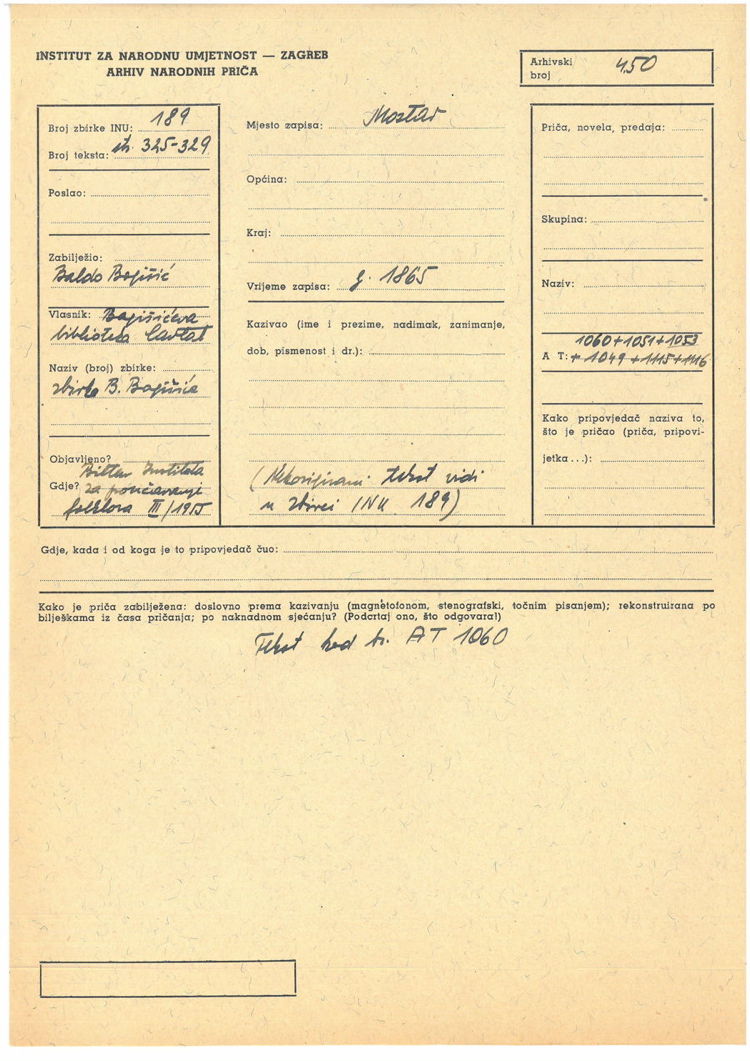 INSTITUT ZA NARODNU UMJETNOST — ZAGREB
ARHIV NARODNIH PRIČA
Arhivski broj 450
Broj zbirke INU: 189
Broj teksta: str. 325-329
Poslao:
Zabilježio:
Baldo Bogišić
Vlasnik: Bogišićeva
biblioteka Cavtat
Naziv (broj) zbirke:
zbirka B. Bogišića
Objavljeno?
Bilten Instituta
Gdje? za proučavanje
folklora III/1955
Mjesto zapisa: Mostar
Općina:
Kraj:
Vrijeme zapisa: g. 1865
Kazivao (ime i prezime, nadimak, zanimanje,
dob, pismenost i dr.):
(Nekorigirani tekst vidi
u zbirci INU 189)
Priča, novela, predaja:
Skupina:
Naziv:
1060+1051+1053
A T: + 1049 +1115+1116
Kako pripovjedač naziva to,
što je pričao (priča, pripovi-
jetka...):
Gdje, kada i od koga je to pripovjedač čuo:
Kako je priča zabilježena: doslovno prema kazivanju (magnetofonom, stenografski, točnim pisanjem); rekonstruirana po
bilješkama iz časa pričanja; po naknadnom sjećanju? (Podcrtaj ono, što odgovara!)
Tekst kod br. AT 1060